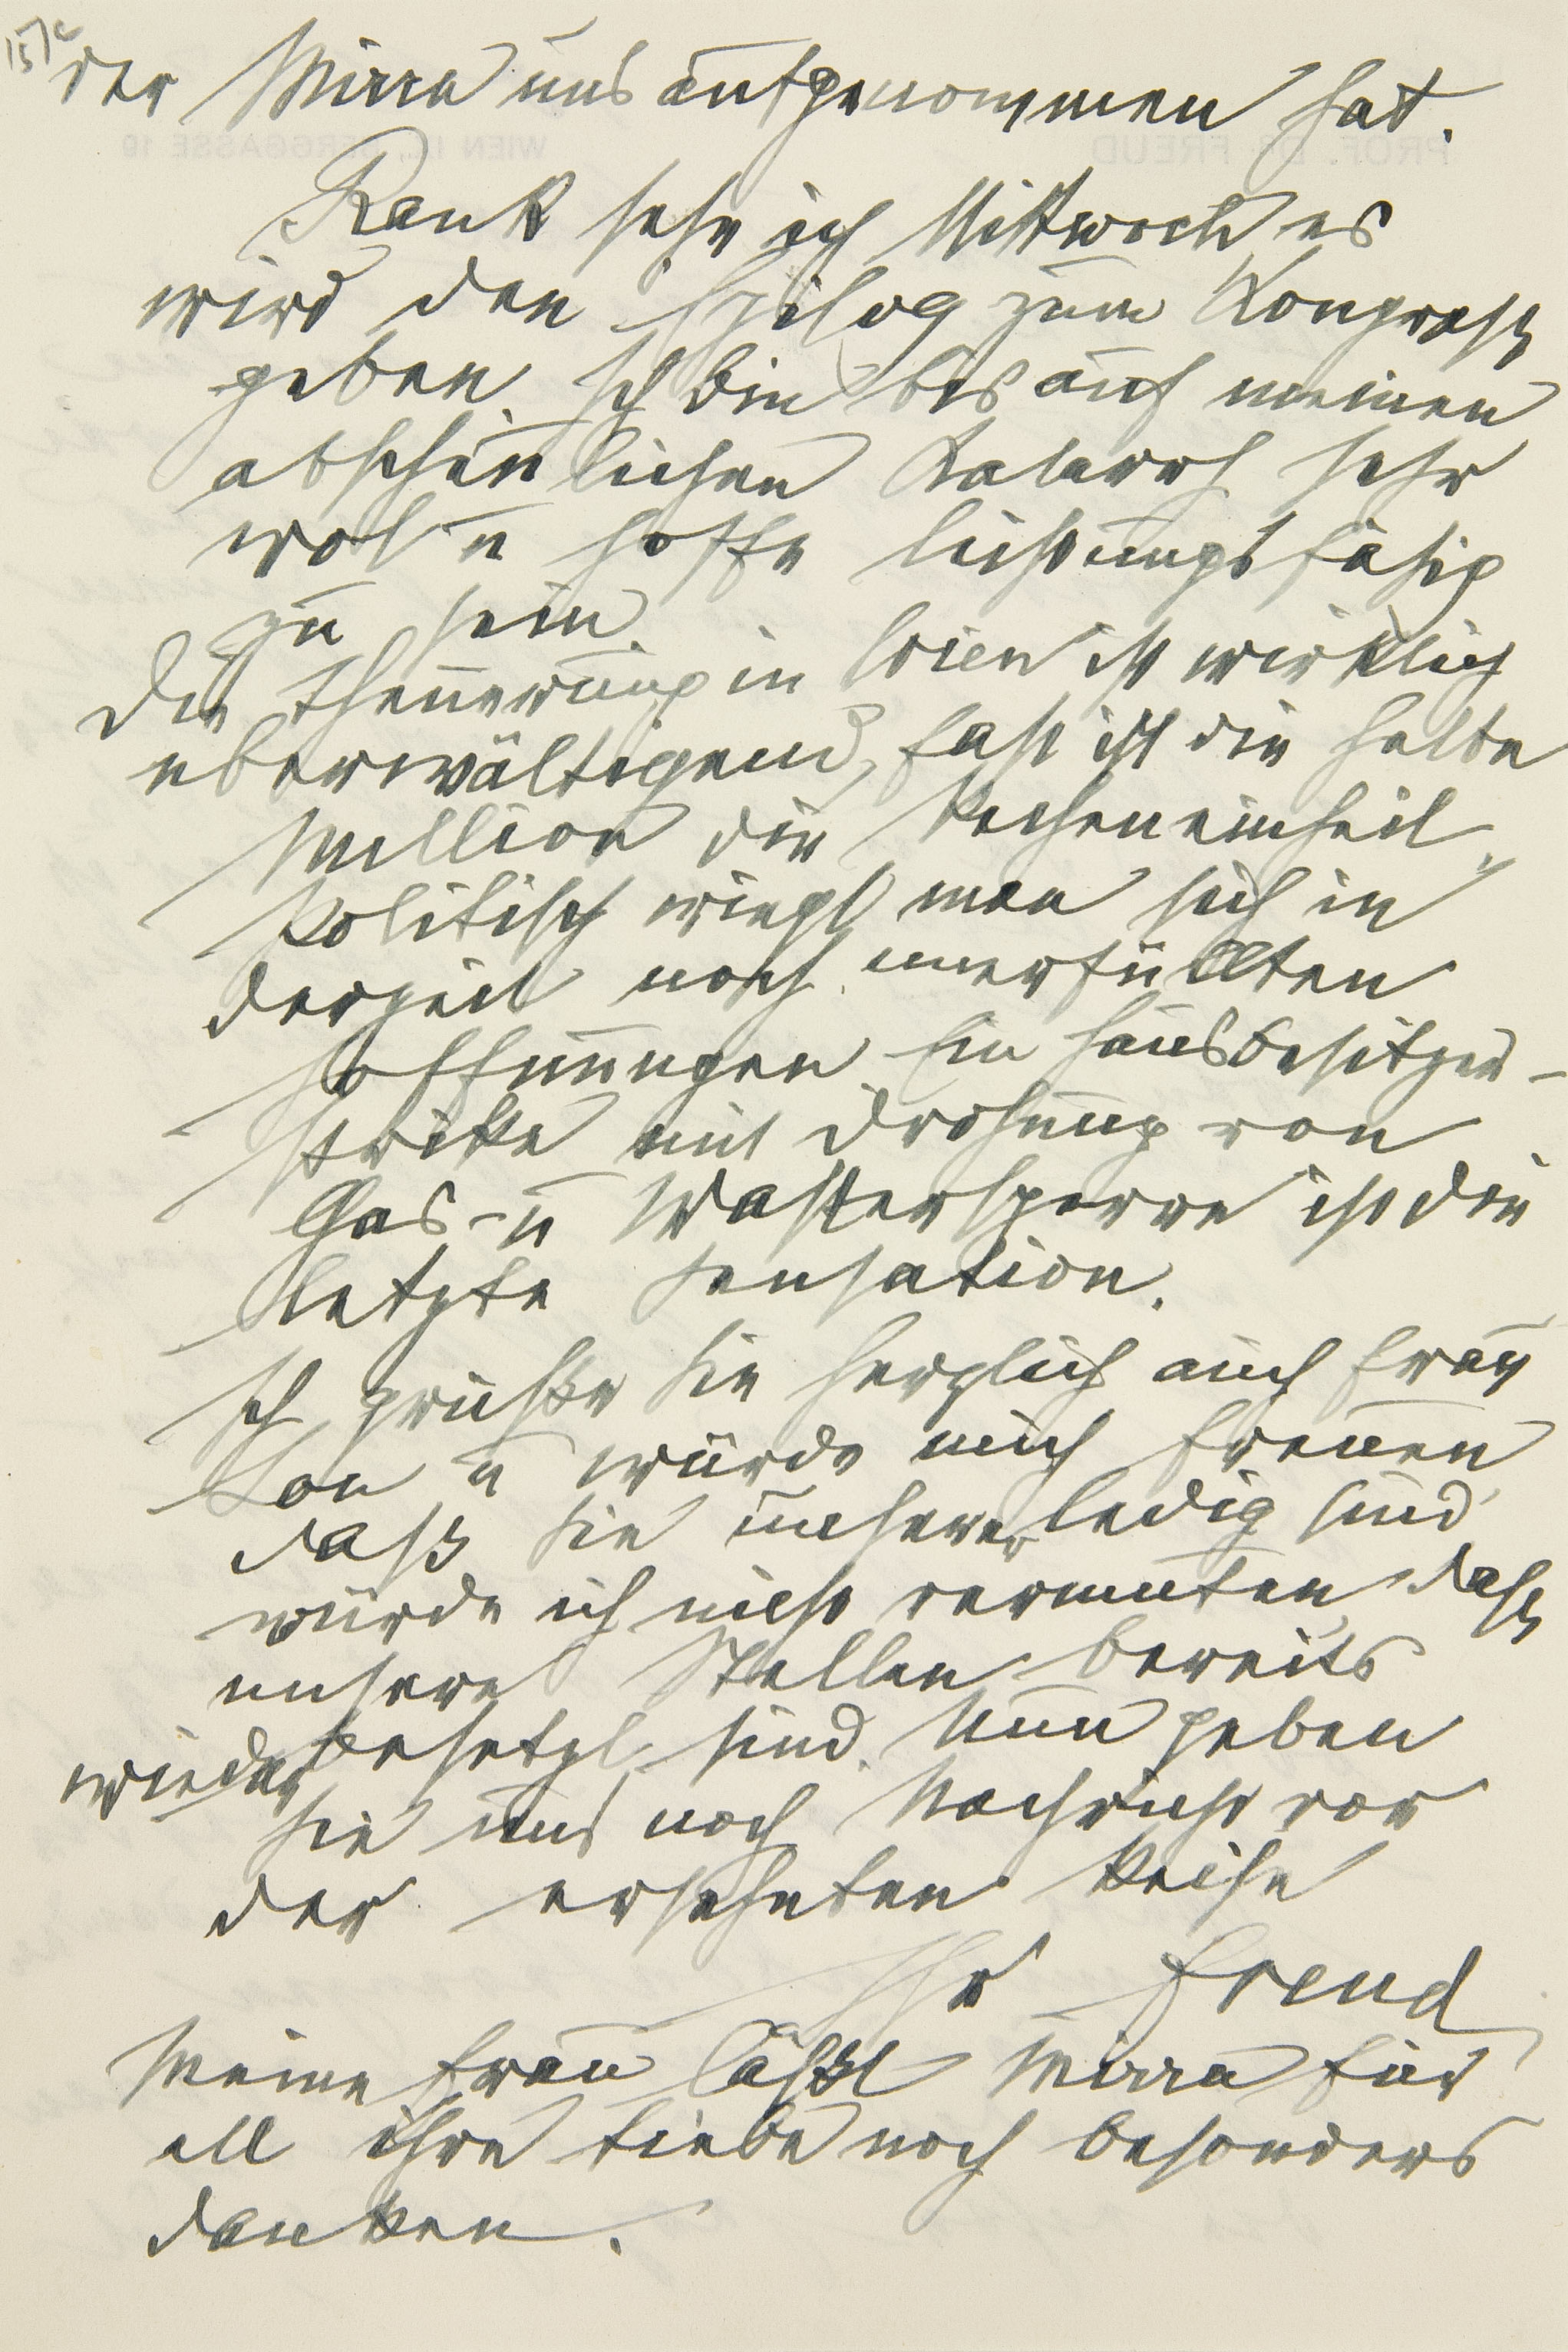 der Mirra uns aufgenommen hat.
Rank sehe ich Mittwoch, es
wird den Epilog zum Kongreß
geben. Ich bin bis auf meinen
abscheulichen Katarrh sehr
wol u hoffe leistungsfähig
zu sein.
Die Theuerung in Wien ist wirklich
überwältigend, fast ist die halbe
Million die Recheneinheit.
Politisch wiegt man sich in
derzeit noch unerfüllten
Hoffnungen. Ein Hausbesitzer-
strike mit Drohung von
Gas- u Wassersperre ist die
letzte Sensation.
Ich grüße Sie herzlich auch Frau
Lou u würde mich freuen
daß Sie unserer ledig sind,
würde ich nicht vermuten, daß
unsere Stellen bereits
wieder besetzt sind. Nun geben
Sie uns noch Nachricht vor
der ersehnten Reise
Ihr Freud
Meine Frau läßt Mirra für
all ihre Liebe noch besonders
danken.
PROF. DR. FREUD
WIEN IX., BERGGASSE 19